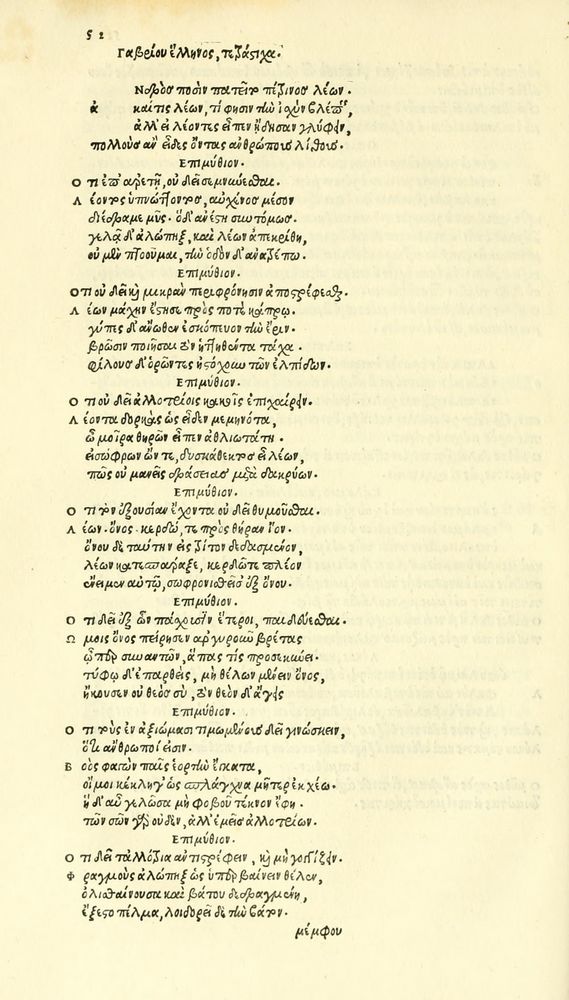 52
Γαβρίου ἕλληνος, τετράστιχα.
Νδρὸς ποσὶν πατεῖτο πέτρινος λέων.
ἀ καί τις λέων, τί φησιν τὴν ἰσχὺν βλέπεις,
ἀλλ' εἰ λέοντες εἶπεν ᾔδησαν γλύφειν,
πολλοὺς ἂν εἶδες ὄντας ἀνθρώπους λίθους.
Επιμύθιον.
Ο τι ἐπ' ἀρετῇ, οὐ δεῖ σεμνύνεσθαι.
Λ έοντος ὑπνώττοντος, αὐχένος μέσον
διέδραμε μῦς. ὁ δ' ἀνέστη συντόμως.
γελᾷ δ' ἀλώπηξ, καὶ λέων ἀπεκρίθη,
οὐ μῦν πτοοῦμαι, τὴν ὁδὸν δ' ἀνατρέπω.
Επιμύθιον.
Ο τι οὐ δεῖ καὶ μικρὰν περιφρόνησιν ἀποστρέφεσθαι.
Λ έων μάχην ἔστησε πρός ποτε κάπρῳ.
γύπες δ' ἄνωθεν ἐσκόπευον τὴν ἔριν.
βρῶσιν ποιῆσαι τὸν ἡττηθέντα τάχα.
φίλους δ' ὁρῶντες ἠστόχουν τῶν ἐλπίδων.
Επιμύθιον.
Ο τι οὐ δεῖ ἀλλοτρίοις κακοῖς ἐπιχαίρειν.
Λ έοντα δορκὰς ὡς εἶδεν μεμηνότα,
ὦ μοῖρα θηρῶν εἶπεν ἀθλιωτάτη.
εἰ σώφρων ὤν τε, δυσκάθεκτος εἶ λέων,
πῶς οὐ μανεὶς δράσειας μετὰ δακρύων.
Επιμύθιον.
Ο τι τὸν ἐξουσίαν ἔχοντα οὐ δεῖ θυμοῦσθαι.
Λ έων. ὄνος. κερδώ, τε πρὸς θήραν ἴον.
ὄνου δὲ ταύτην εἰς τρίτον δεδασμένον,
λέων κατεσπάραξε, κερδῶ τε πλέον
ἔνειμεν αὐτῷ, σωφρονισθεῖσ' ἐξ ὄνου.
Επιμύθιον.
Ο τι δεῖ ἐξ ὧν πάσχουσιν ἕτεροι, παιδεύεσθαι.
Ω μοις ὄνος πείρησεν ἀργυροῦν βρέτας
ᾧ πᾶς συναντῶν, ἅπας τίς προσεκύνει.
τύφῳ δ' ἐπαρθείς, μὴ θέλων μένειν ὄνος,
ἤκουσεν οὐ θεὸς σὺ, τὸν θεὸν δ' ἄγεις
Επιμύθιον.
Ο τι τοὺς ἐν ἀξιώμασι τιμωμένους δεῖ γινώσκειν,
ὅτι ἄνθρωποί εἰσιν.
Β οὸς φαγὼν παῖς ἑορτὴν ἔγκατα,
οἴμοι κέκληγ' ὡς σπλάγχνα μῆτερ ἐκχέω.
ἡ δ' αὖ γελῶσα μὴ φοβοῦ τέκνον ἔφη.
τῶν σῶν γὰρ οὐδὲν, ἀλλ' ἐμεῖς ἀλλοτρίων.
Επιμύθιον.
Ο τι δεῖ τἀλλότρια ἀντιστρέφειν, καὶ μὴ γογγίζειν.
Φ ραγμοὺς ἀλώπηξ ὡς ὑπερβαίνειν θέλων,
ὀλισθαίνουσα καὶ βάτου δεδραγμένη,
ἔξεστο πέλμα, λοιδορεῖ δὲ τὴν βάτον.
μέμφου